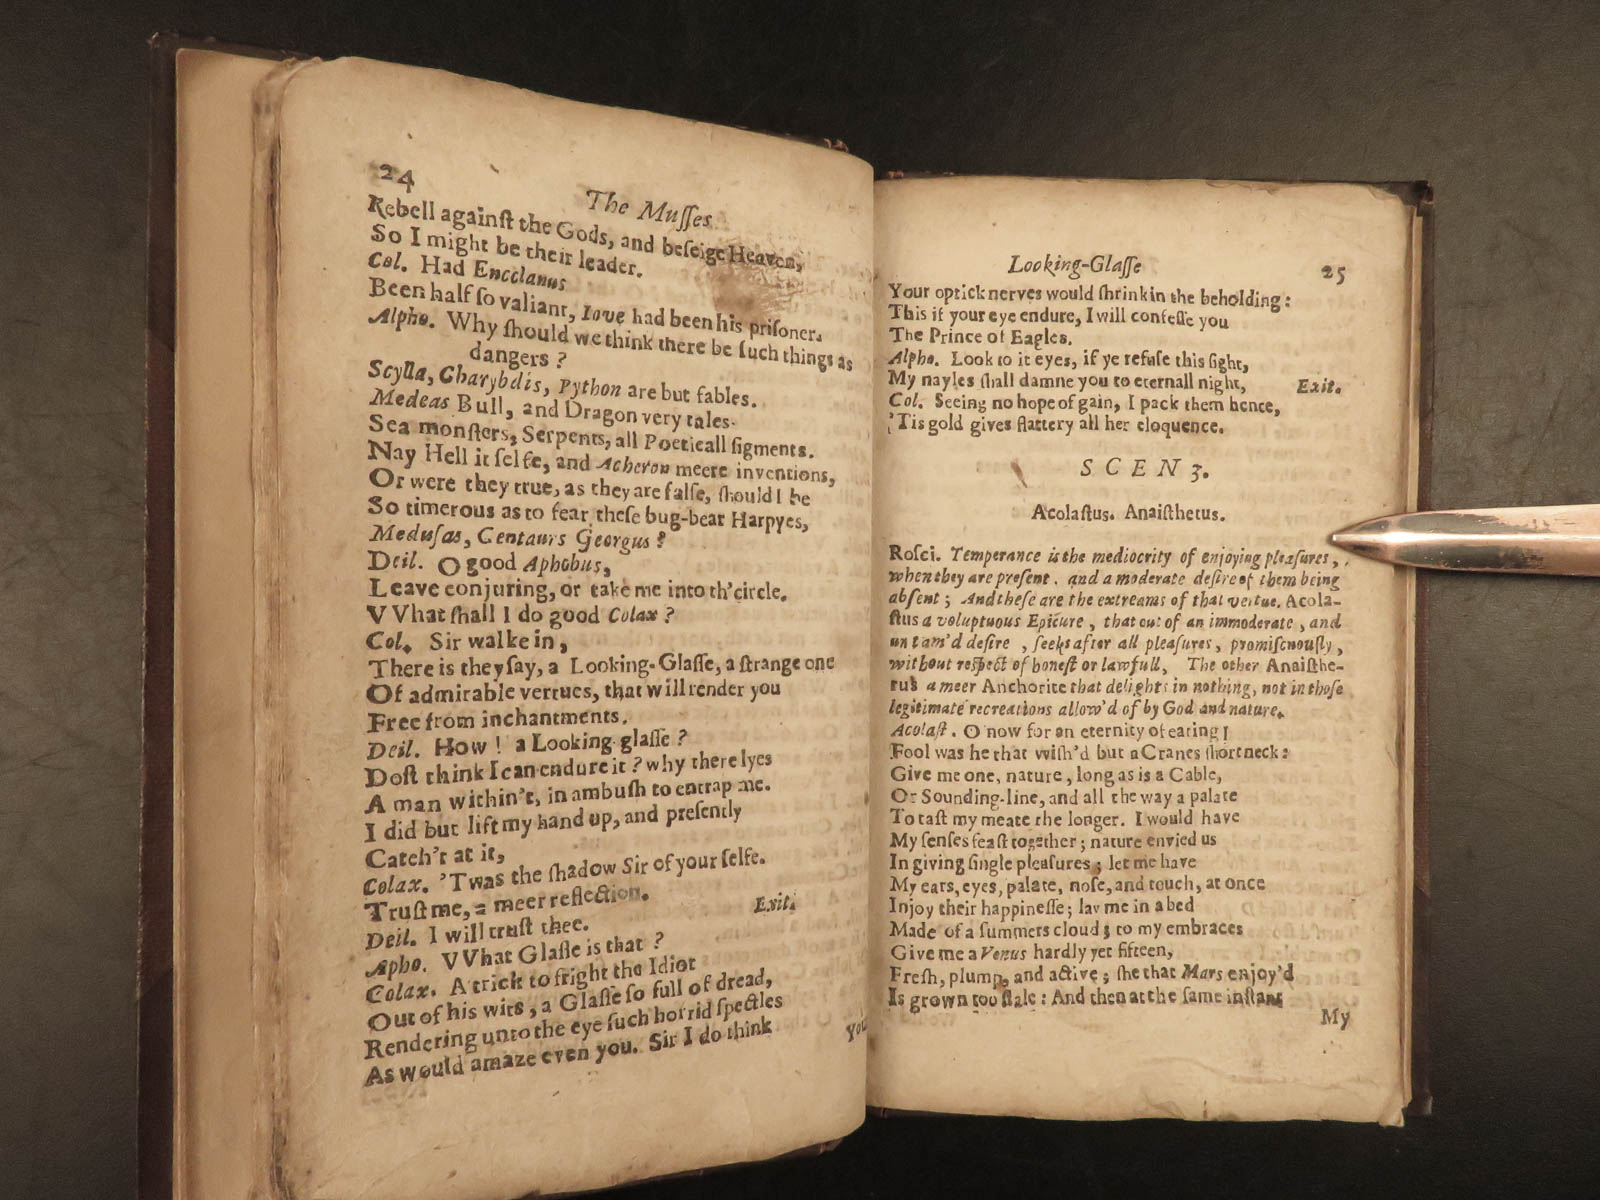 24
The Muſſes
Rebell againſt the Gods, and beſeige Heaven,
So I might be their leader.
Col. Had Encclanus
Been half ſo valiant, Iove had been his priſoner.
Alpho. Why ſhould we think there be ſuch things as
dangers ?
Scylla, Charybdis, Python are but fables.
Medeas Bull, and Dragon very tales.
Sea monſters, Serpents, all Poeticall figments.
Nay Hell it ſelfe, and Acheron meere inventions,
Or were they true, as they are falſe, ſhould I be
So timerous as to fear theſe bug-bear Harpyes,
Meduſas, Centaurs Georgus ?
Deil. O good Aphobus,
Leave conjuring, or take me into th'circle.
VVhat ſhall I do good Colax ?
Col. Sir walke in,
There is they ſay, a Looking-Glaſſe, a ſtrange one
Of admirable vertues, that will render you
Free from inchantments.
Deil. How ! a Looking-glaſſe ?
Doſt think I can endure it ? why there lyes
A man within't, in ambuſh to entrap me.
I did but lift my hand up, and preſently
Catch't at it,
Colax. 'Twas the ſhadow Sir of your ſelfe.
Truſt me, a meer reflection.
Deil. I will truſt thee. Exit.
Apho. VVhat Glaſſe is that ?
Colax. A trick to fright the Idiot
Out of his wits, a Glaſſe ſo full of dread,
Rendering unto the eye ſuch horrid ſpectles
As would amaze even you. Sir I do think
Looking-Glaſſe
25
Your optick nerves would ſhrink in the beholding :
This if your eye endure, I will confeſſe you
The Prince of Eagles.
Alpho. Look to it eyes, if ye refuſe this ſight,
My nayles ſhall damne you to eternall night, Exit.
Col. Seeing no hope of gain, I pack them hence,
'Tis gold gives flattery all her eloquence.
SCEN 3.
Acolaſtus. Anaiſthetus.
Roſci. Temperance is the mediocrity of enjoying pleaſures,
when they are preſent, and a moderate deſire of them being
abſent ; And theſe are the extreams of that vertue. Acola-
ſtus a voluptuous Epicure, that out of an immoderate, and
untam'd deſire, ſeeks after all pleaſures, promiſcuouſly,
without reſpect of honeſt or lawfull, The other Anaiſthe-
tus a meer Anchorite that delights in nothing, not in thoſe
legitimate recreations allow'd of by God and nature.
Acolaſt. O now for an eternity of eating !
Fool was he that wiſh'd but a Cranes ſhort neck :
Give me one, nature, long as is a Cable,
Or Sounding-line, and all the way a palate
To taſt my meate the longer. I would have
My ſenſes feaſt together ; nature envied us
In giving ſingle pleaſures ; let me have
My ears, eyes, palate, noſe, and touch, at once
Injoy their happineſſe ; lay me in a bed
Made of a ſummers cloud ; to my embraces
Give me a Venus hardly yet fifteen,
Freſh, plump, and active ; ſhe that Mars enjoy'd
Is grown too ſtale : And then at the ſame inſtant
My